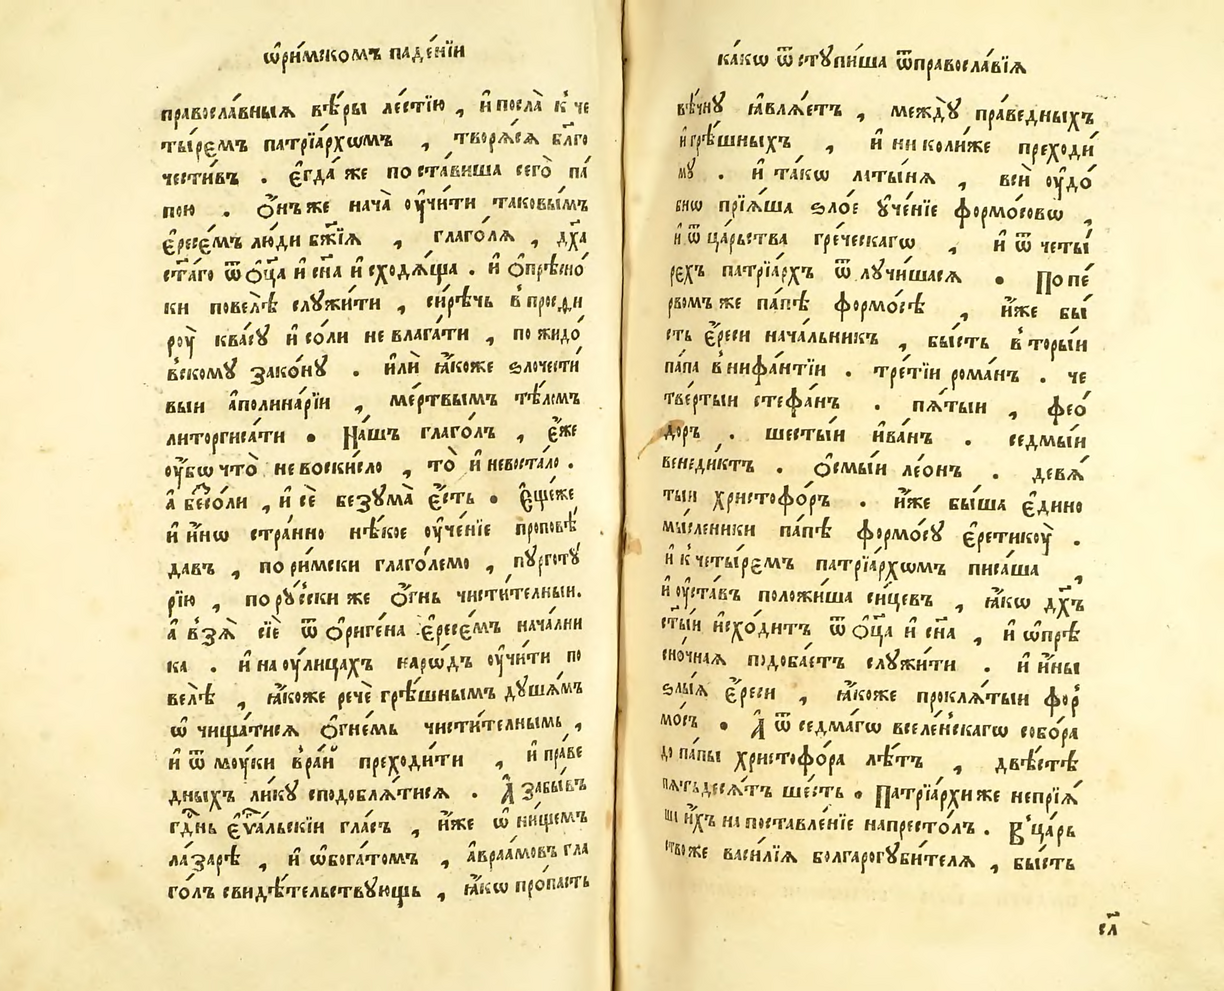 ѡ҆ри́мскомъ паде́нїи
правосла́вныѧ вѣ́ры ле́стїю , и҆ посла̀ к че
ты́ремъ патрїа́рхѡмъ , творѧ́сѧ бл҃го
че́стивъ . є҆гда́ же поста́виша сего̀ па́
пою . ѻ҆́нъже нача̀ ѹ҆чи́ти таковы́мъ
є҆ресе́мъ лю́ди бж҃їѧ , глаго́лѧ , дх҃а
ст҃а́го ѿ ѻ҆ц҃а̀ и҆ сн҃а и҆сходѧ́ща . и҆ ѻ҆прѣсно́
ки повелѣ̀ слѹжи́ти , си́рѣчь в просди
роѹ̀ ква́сꙋ и҆ со́ли не влага́ти , по жидо́
вскомꙋ зако́нꙋ . и҆лѝ ꙗ҆́коже ѕлочести́
выи а҆полина́рїи , ме́ртвымъ тѣ́ломъ
литоргиса́ти . На́шъ глаго́лъ , є҆́же
ѹ҆́бѡ что̀ не воски́сло , то̀ и҆ невоста́ло .
а҆ бе́сѡли , и҆ сѐ безꙋма̀ є҆́сть . Є҆ще́же
и҆ и҆́нѡ стра́нно нѣ́кое ѹ҆че́нїе проповѣ́
давъ , по ри́мски глаго́лемо , пꙋрготꙋ́
рїю , порꙋ́сски же ѻ҆́гнь чисти́телныи.
а҆ взѧ̀ сїѐ ѿ ѻ҆риге́на є҆ресе́мъ нача́лни
ка . и҆ на ѹ҆́лицахъ наро́дъ ѹ҆чи́ти по
велѣ̀ , ꙗ҆́коже речѐ грѣ́шнымъ дꙋша́мъ
ѡ҆чища́тисѧ ѻ҆гне́мъ чисти́телнымъ ,
и҆ ѿ мꙋ́ки в ра́й преходи́ти , и҆ пра́ве
дныхъ ликꙋ̀ сподоблѧ́тисѧ . А҆ забы́въ
гд҃нь є҆ѵа́льскїи гла́съ , и҆́же ѡ҆ ни́щемъ
ла́зарѣ , и҆ ѡ҆бога́томъ , а҆враа́мовъ гла
го́лъ свидѣ́тельствꙋющь , ꙗ҆́кѡ про́пасть
ка́кѡ ѿстꙋпи́ша ѿправосла́вїѧ
вѣ́чнꙋ ꙗ҆влѧ́етъ , междꙋ̀ пра́ведныхъ
и҆ грѣ́шныхъ , и҆ ни коли́же преходи́
мꙋ . и҆ та́кѡ латы́нѧ , всѝ ѹ҆до́
бнѡ прїѧ́ша ѕло́е ѹ҆че́нїе формо́совѡ ,
и҆ ѿ ца́рьства гре́ческагѡ , и҆ ѿ четы́
рехъ патрїа́рхъ ѿлꙋчи́шасѧ . По пе́
рвомъ же па́пѣ формо́сѣ , и҆́же бы́
сть є҆́реси нача́льникъ , бы́сть вторы́и
па́па внифа́нтїи . тре́тїи рома́нъ . че
тве́ртыи стефа́нъ . пѧ́тыи , фео́
доръ . шесты́и и҆ва́нъ . седмы́и
венеди́ктъ . ѻ҆смы́и ле́онъ . девѧ́
тыи христофо́ръ . и҆́же бы́ша є҆́дино
мы́сленики па́пѣ формо́сꙋ є҆ретикоѹ̀ .
и҆ к четы́ремъ патрїа́рхѡмъ писа́ша ,
и҆ ѹ҆ста́въ положи́ша си́цевъ , ꙗ҆́кѡ дх҃ъ
ст҃ы́и и҆схо́дитъ ѿ ѻ҆ц҃а̀ и҆ сн҃а , и҆ ѡ҆прѣ
сно́чнаѧ подоба́етъ слѹжи́ти . и҆ и҆́ны
ѕлы́ѧ є҆́реси , ꙗ҆́коже проклѧ́тыи фор
мо́съ . А҆ ѿ седма́гѡ вселе́нскагѡ собо́ра
до па́пы христофо́ра лѣ́тъ , двѣ́стѣ
пѧтьдесѧ́тъ ше́сть . Патрїа́рхи же непрїѧ́
ша и҆́хъ на поставле́нїе напресто́лъ . В ца́рь
ство же васи́лїѧ болгарогꙋби́телѧ , бы́сть
сл҃